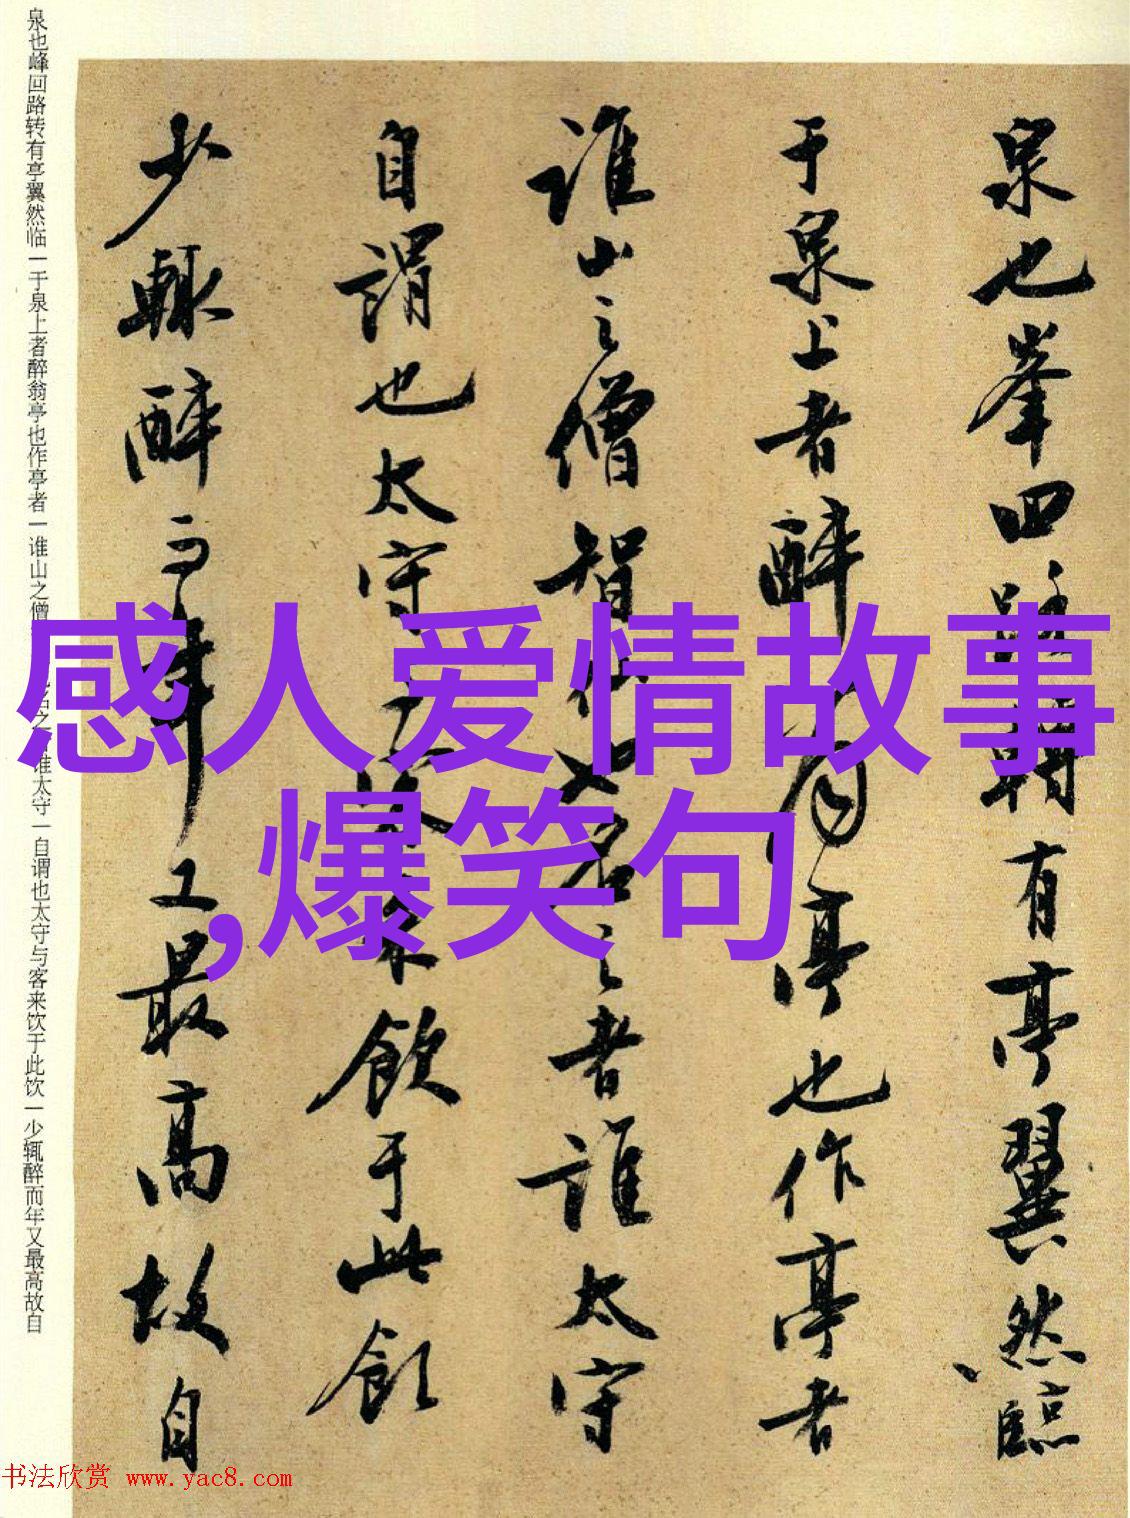 泉也峯回路轉有亭翼然臨
于泉上者醉翁亭也作亭者
誰山之僧智也名之者誰太守
自謂也太守客來飲于此飲
少輒醉而年又最高故自
泉也峰回路转有亭翼然临一于泉上者醉翁亭也作亭者一谁山之僧之者谁太守一自谓也太守与客来饮于此饮一少辄醉而年又最高故自
感人爱情故事
,爆笑句
书法欣赏 www.yac8.com